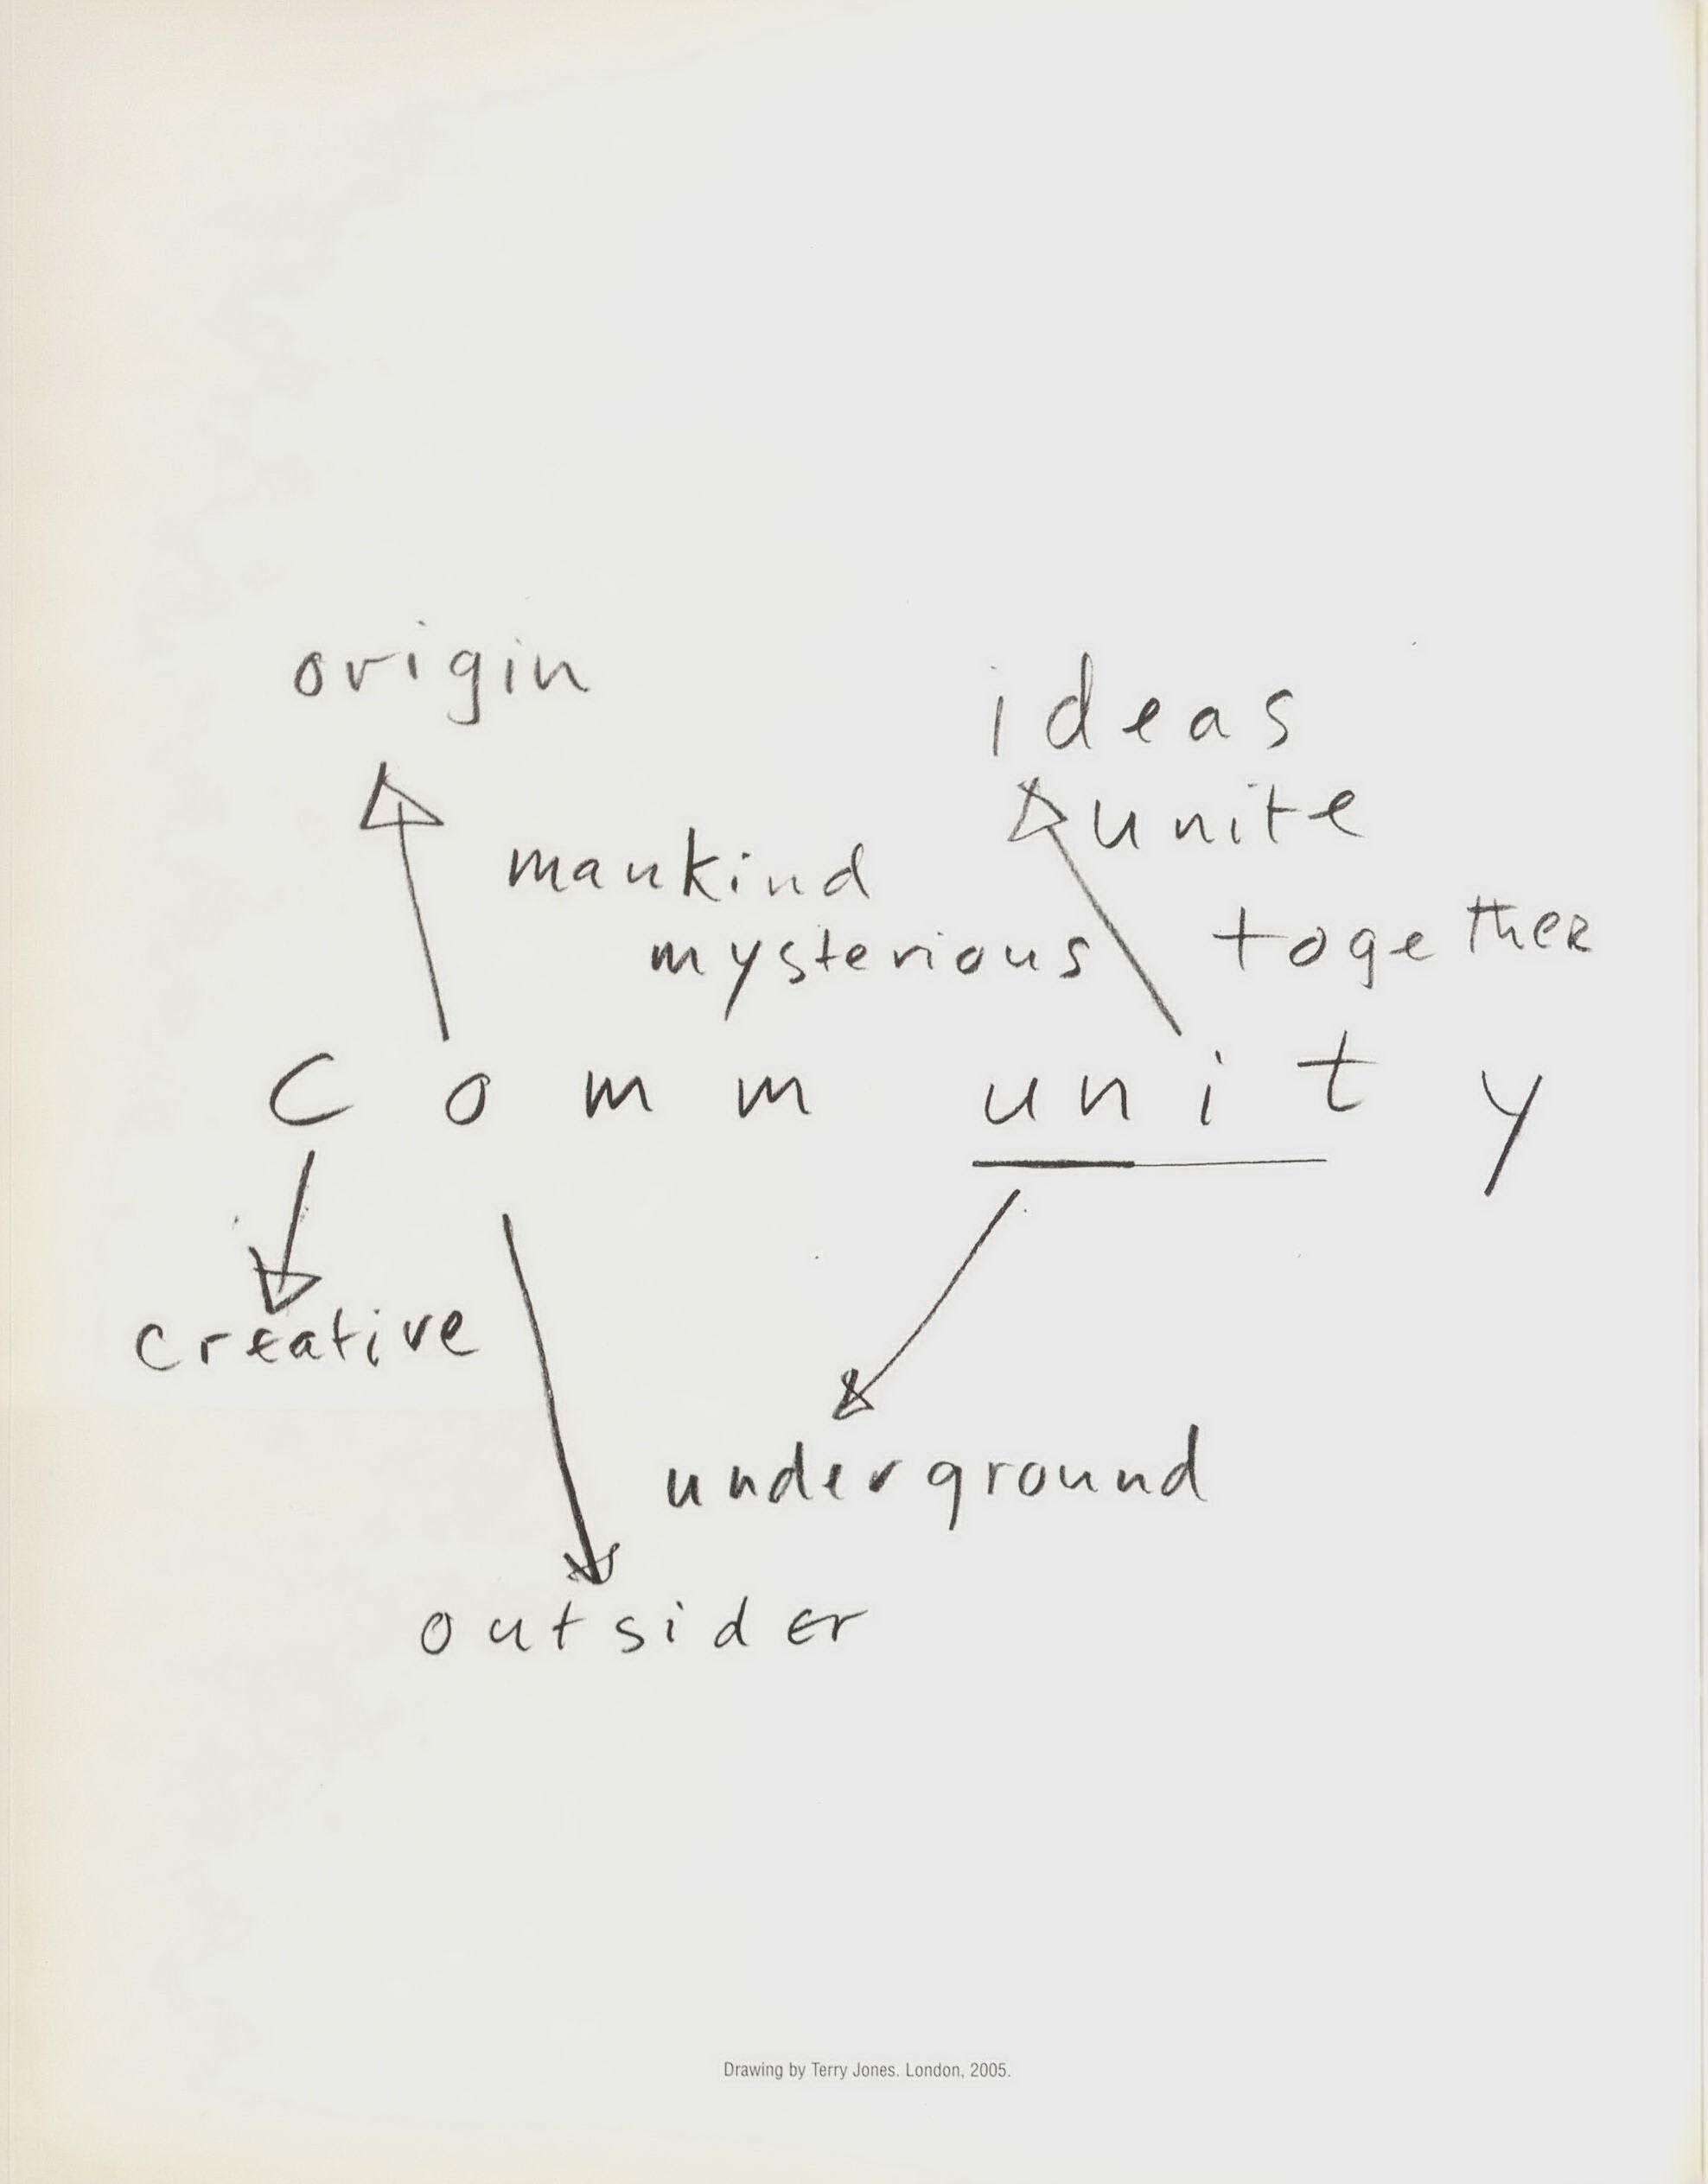 origin
ideas
unite
mankind
together
mysterious
comm unity
creative
underground
outsider
Drawing by Terry Jones. London, 2005.